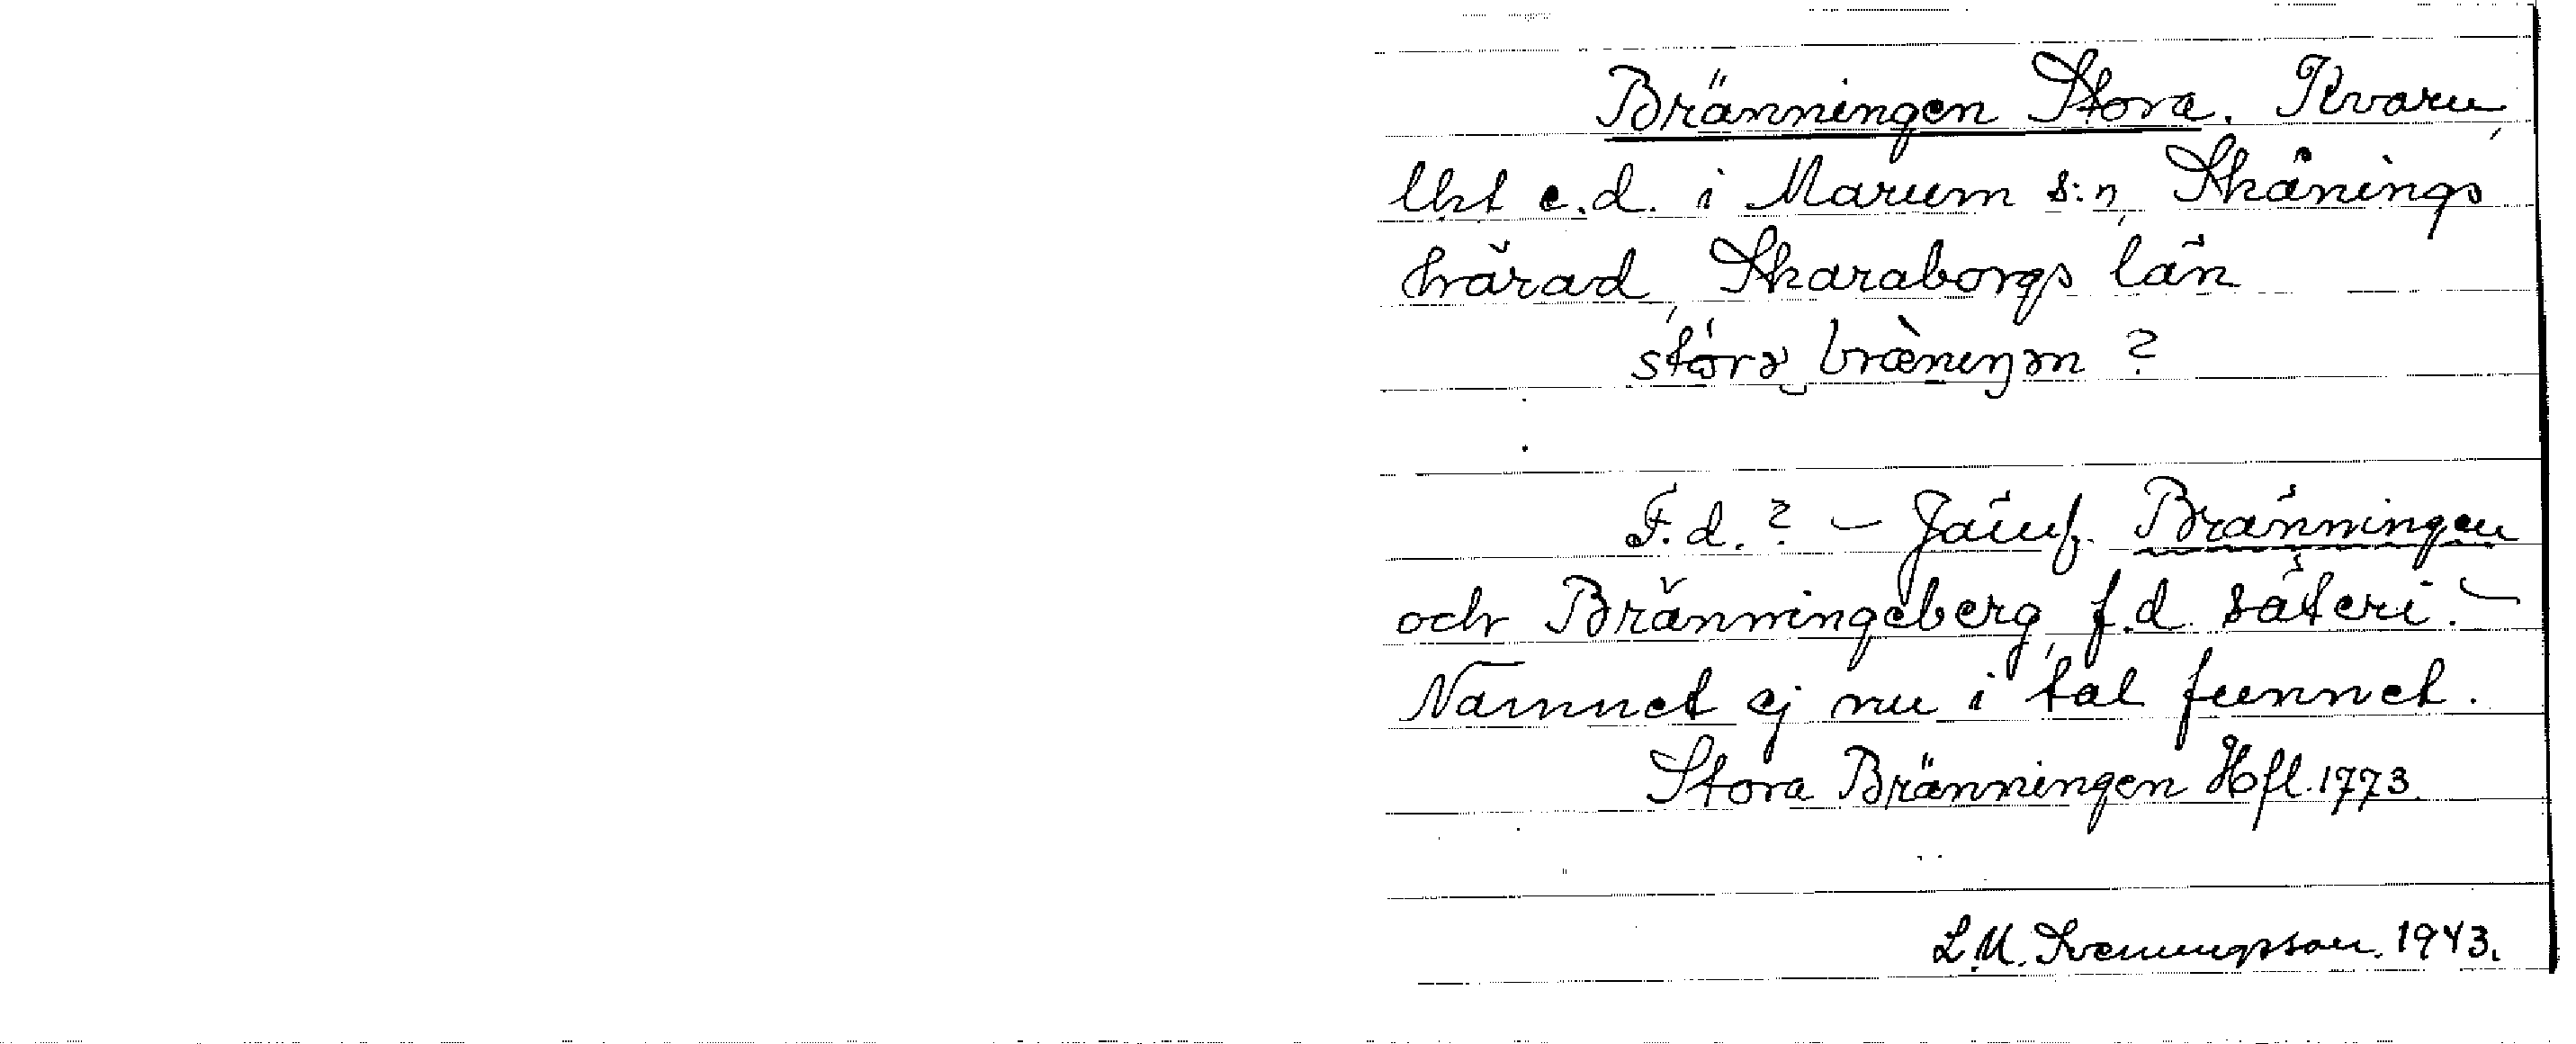 Bränningen Stora. Kvarn,
lht e.d. i Marum s:n, Skånings
härad, Skaraborgs län
F.d.? – Jämf. Bränningen
och Bränningeberg, f.d. säteri. –
Namnet ej nu i tal funnet.
Stora Bränningen Hfl. 1773.
L.M. Svenungsson. 1943.